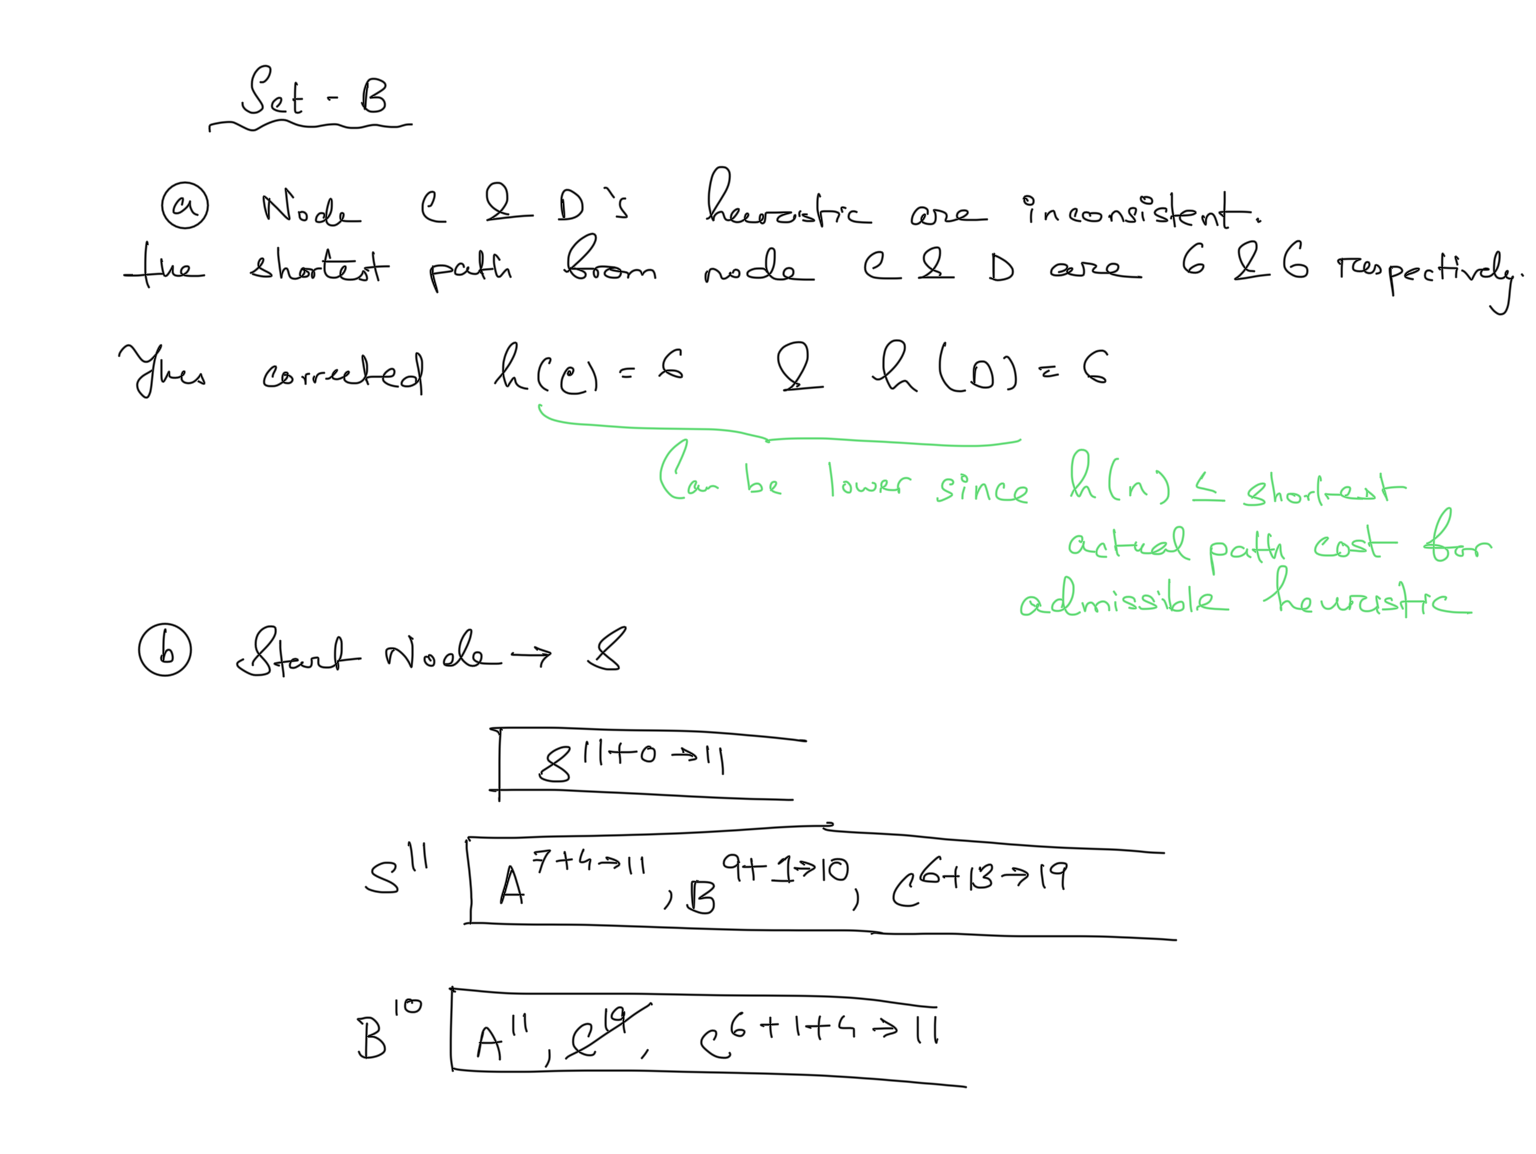 Set - B
(a) Node C & D's heurostic are inconsistent.
The shortest path from node C & D are 6 & 6 respectively.
Thus corrected h(C) = 6 & h(D) = 6
Can be lower since h(n) ≤ shortest
actual path cost for
admissible heuristic
(b) Start Node → S
S 11+0→11
S 11 A 7+4→11, B 9+1→10, C 6+13→19
B 10 A 11, C 19, C 6+1+4→11